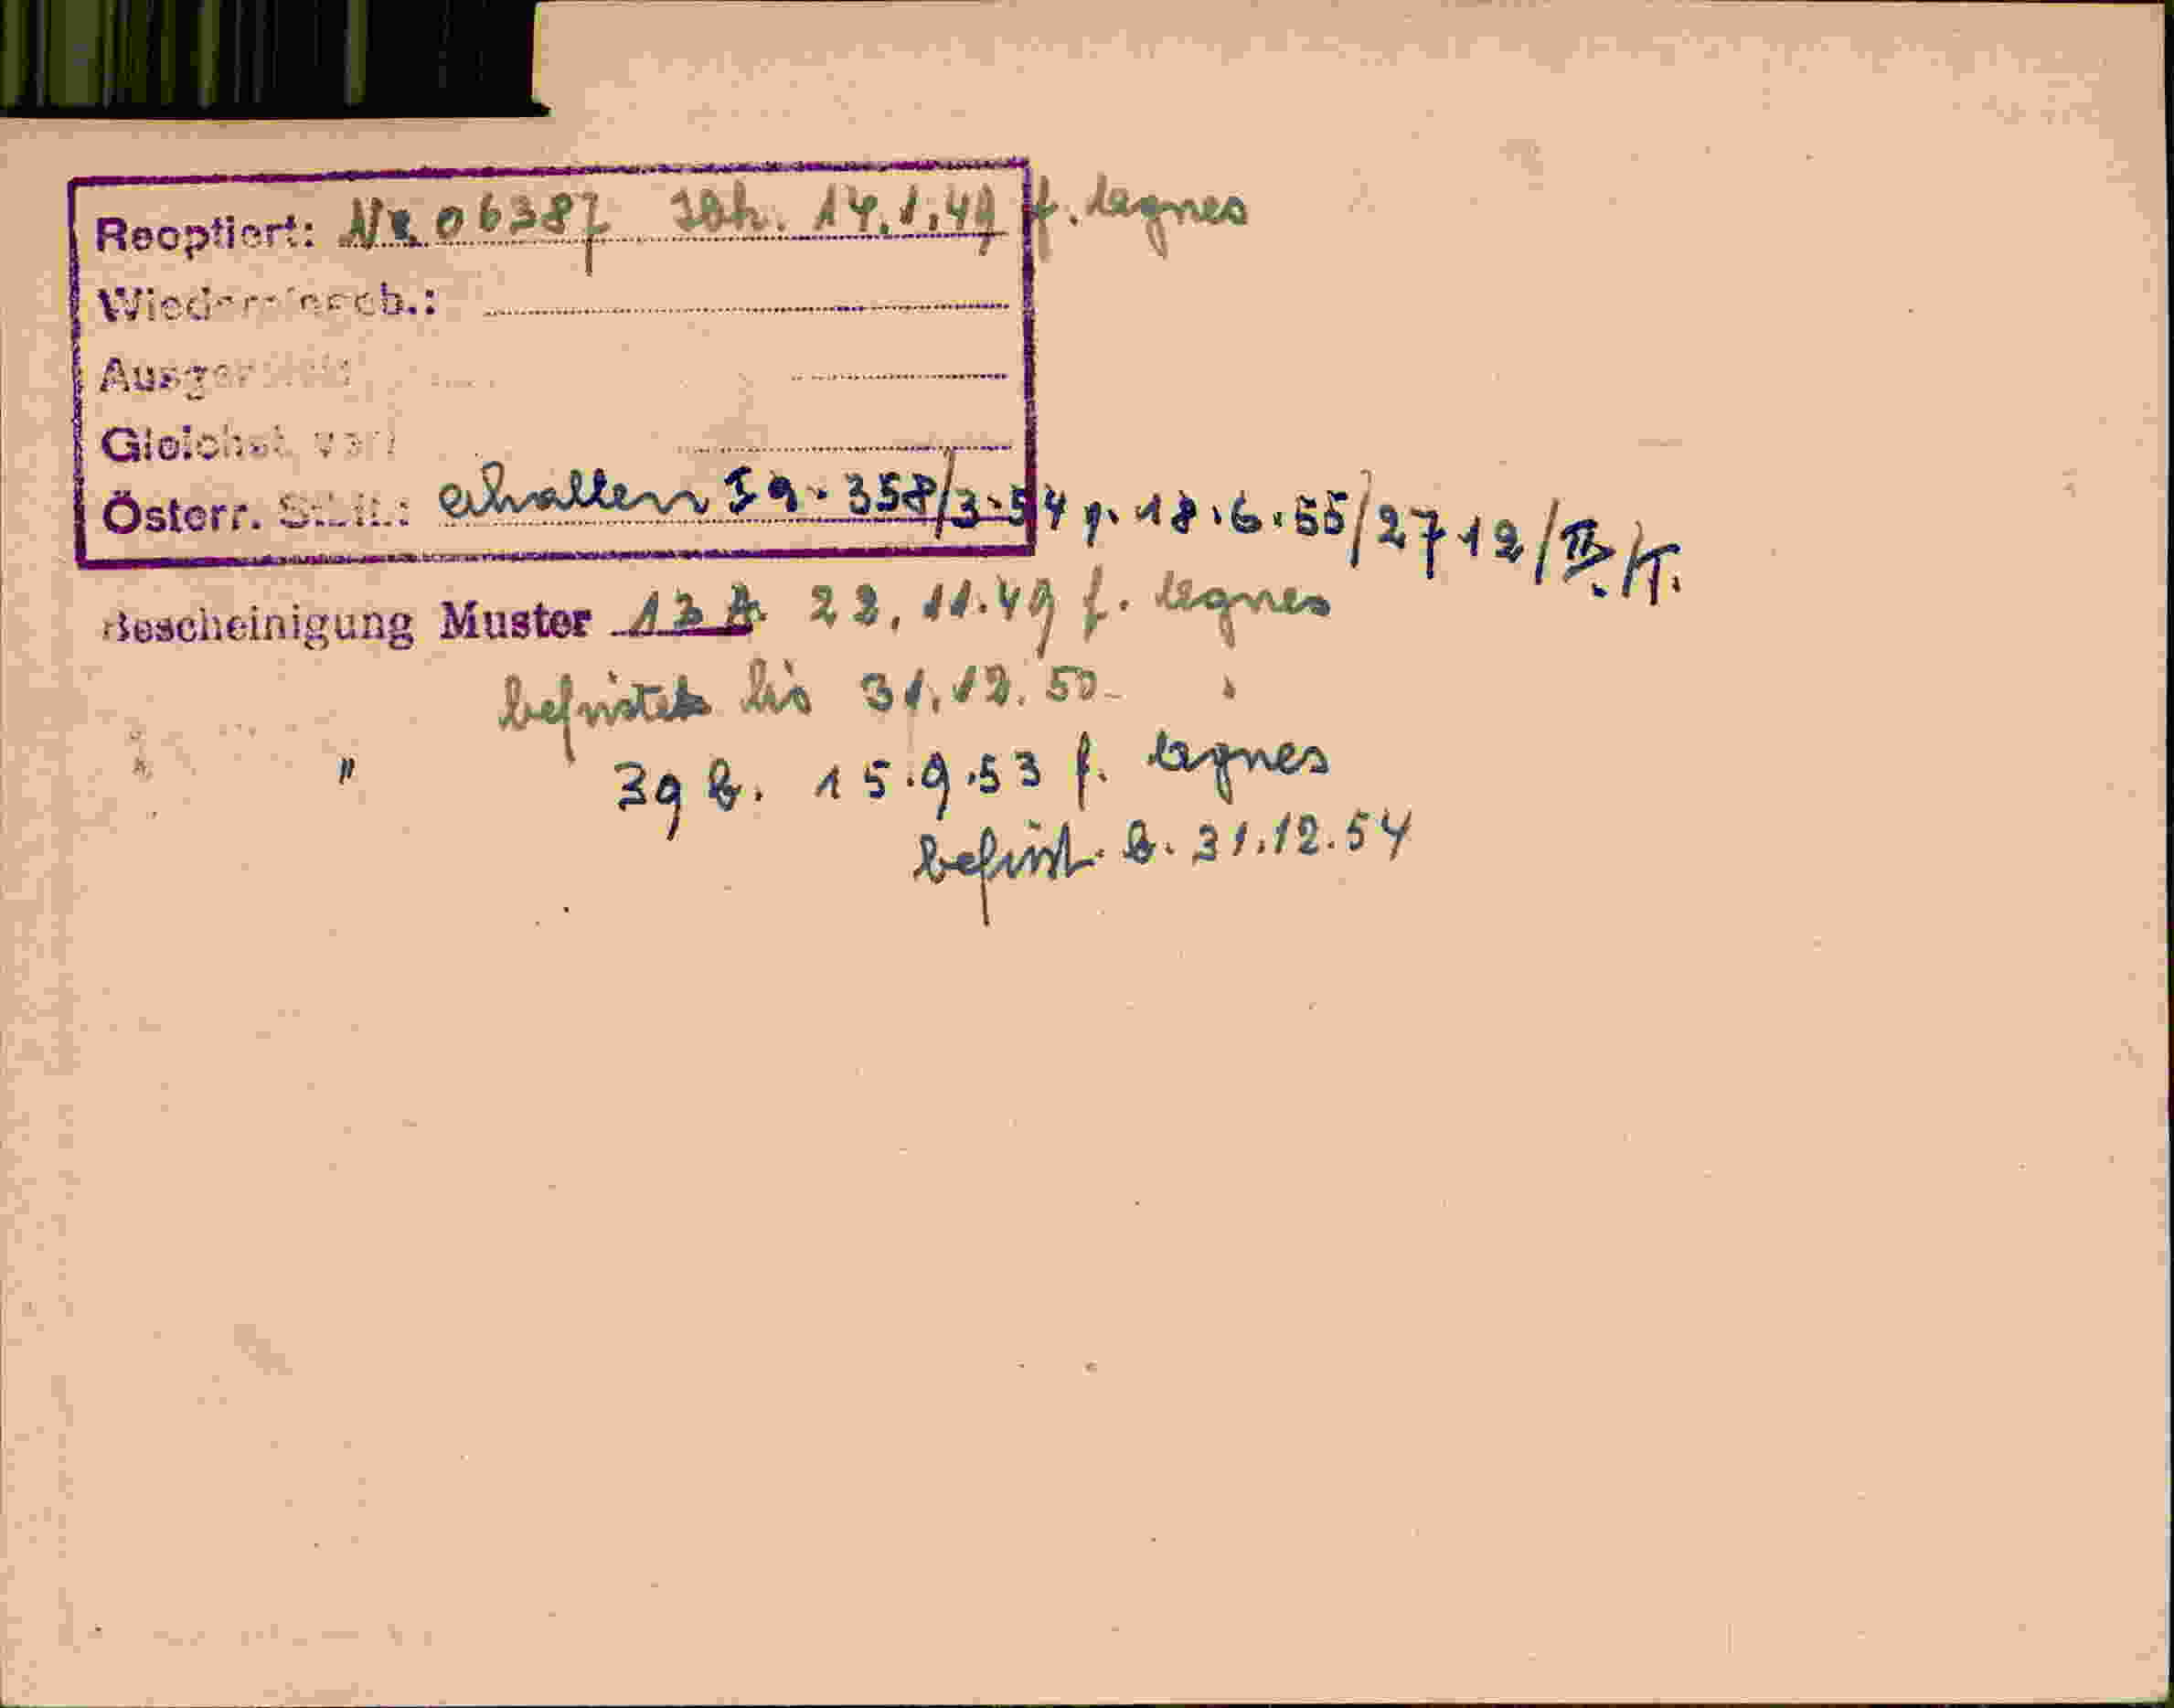 Reoptiert: Nr. 06387 Jbk. 14.1.49 f. Agnes
Wiederverb.:
Ausger
Gleichst. verl
Österr. Stbft.: erhalten Ia. 358/3-54 v. 18.6.55/2712/II/T.
Bescheinigung Muster 13 A. 22.11.49 f. Agnes
befristet bis 31.12.50
" 39 b. 15.9.53 f. Agnes
befrist. b. 31.12.54